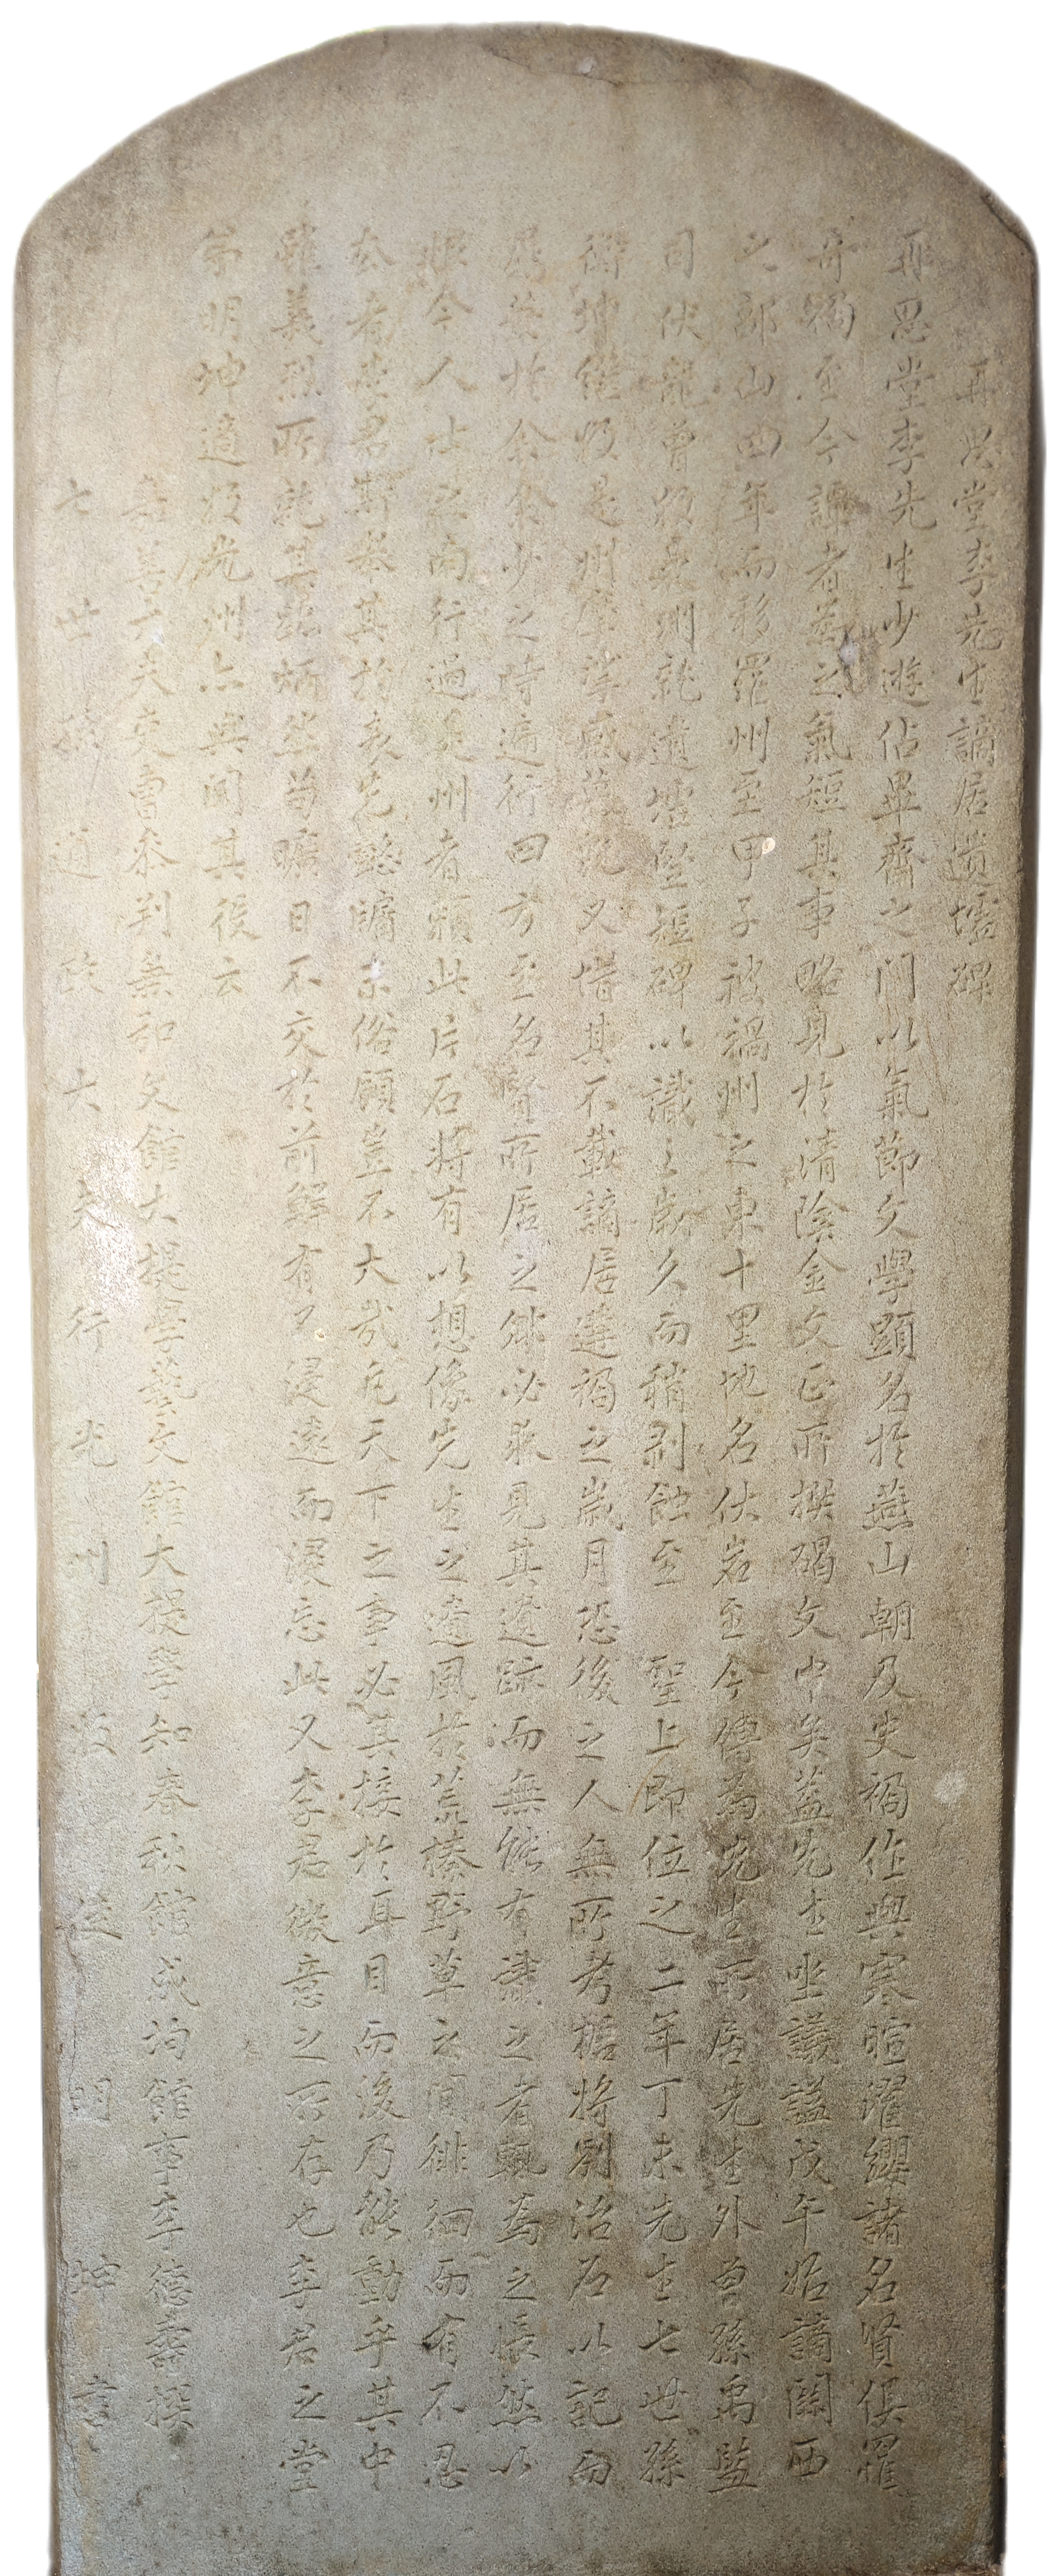 再思堂李先生謫居遺墟碑
再思堂李先生少遊佔畢齋之門以氣節文學顯名於燕山朝及史禍作與寒暄濯纓諸名賢俱罹
奇禍至今譚者爲之氣短其事略見於淸陰金文正所撰碣文中矣盖先生坐議謚戊午始謫關西
之郭山四年而移羅州至甲子被禍州之東十里地名伏岩至今傳爲先生所居先生外曾孫禹監
司伏龍曾牧是州就遺墟竪短碑以識之歲久而稍剝蝕至 聖上即位之二年丁未先生七世孫
衡坤継牧是州摩挲感慕旣又惜其不載謫居遘禍之歲月恐後之人無所考據將別治石以記而
屬筆於余余少之時遍行四方至名賢所居之鄉必求見其遺跡而無能有識之者輒爲之悵然以
恨今人士之南行過是州者賴此片石將有以想像先生之遺風於荒榛野草之間徘徊而有不忍
去者李君斯擧其於衰先懿牖末俗顧豈不大哉凡天下之事必其接於耳目而後乃能動乎其中
雖義烈所就其始炳然苟曠日不交於前鮮有不浸遠而浸忘此又李君微意之所存也李君之堂
弟明坤適牧光州亦與聞其役云
嘉善大夫吏曹參判兼弘文館大提學藝文館大提學知春秋館成均館事李德壽撰
七世孫通政大夫行光州牧使明坤書